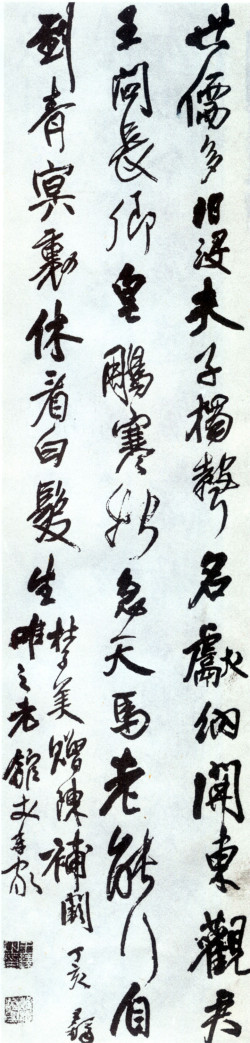 世儒多汩沒夫子獨聲名獻納開東觀君
王問長卿皂鵰寒始急天馬老能行自
到青冥裏休看白髮生
杜子美贈陳補闕丁亥
之老館丈